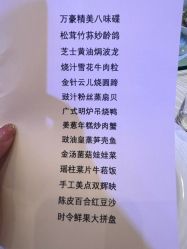 万豪精美八味碟
松茸竹荪妙龄鸽
芝士黄油焗波龙
烧汁雪花牛肉粒
金针云儿烧圆蹄
豉汁粉丝蒸扇贝
广式明炉吊烧鸭
姜葱年糕炒肉蟹
豉油皇蒸笋壳鱼
金汤菌菇娃娃菜
瑶柱菜片牛菘饭
手工美点双辉映
陈皮百合红豆沙
时令鲜果大拼盘